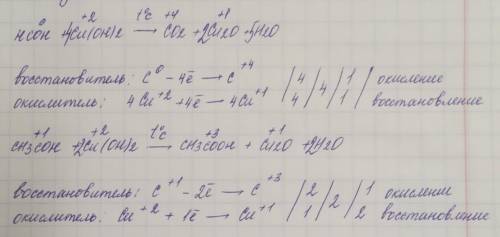 HCOH + 4Cu(OH)2 —t°C→ CO2 + 2Cu2O + 5H2O
восстановитель: C⁰ - 4ē → C⁺⁴ / 4 / 4 / 1 / окисление
окислитель: 4Cu⁺² + 4ē → 4Cu⁺¹ / 4 / 1 / восстановление
CH3COH + 2Cu(OH)2 —t°C→ CH3COOH + Cu2O + 2H2O
восстановитель: C⁺¹ - 2ē → C⁺³ / 2 / 2 / 1 окисление
окислитель: Cu⁺² + 1ē → Cu⁺¹ / 1 / 2 восстановление